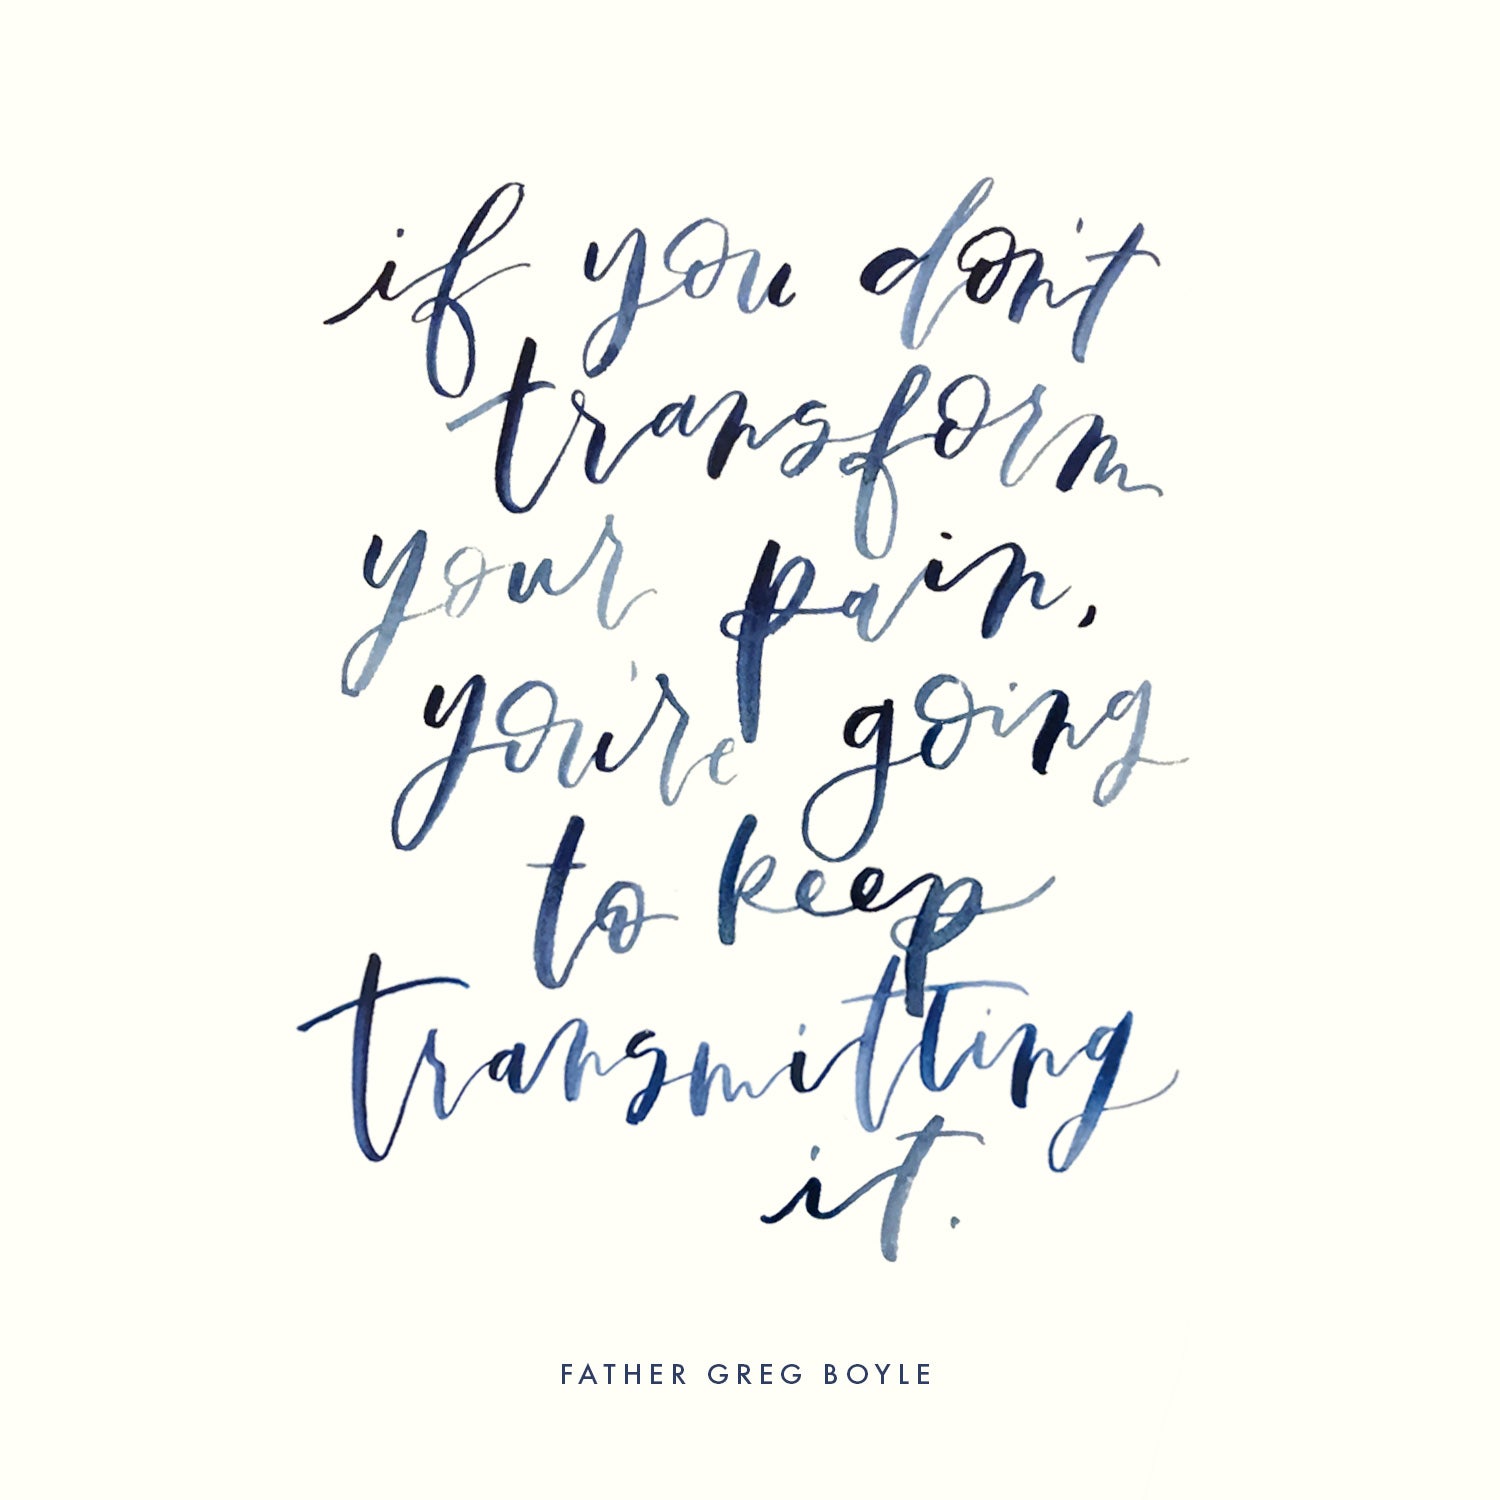 if you don't
transform
your pain,
you're going
to keep
transmitting
it.
FATHER GREG BOYLE